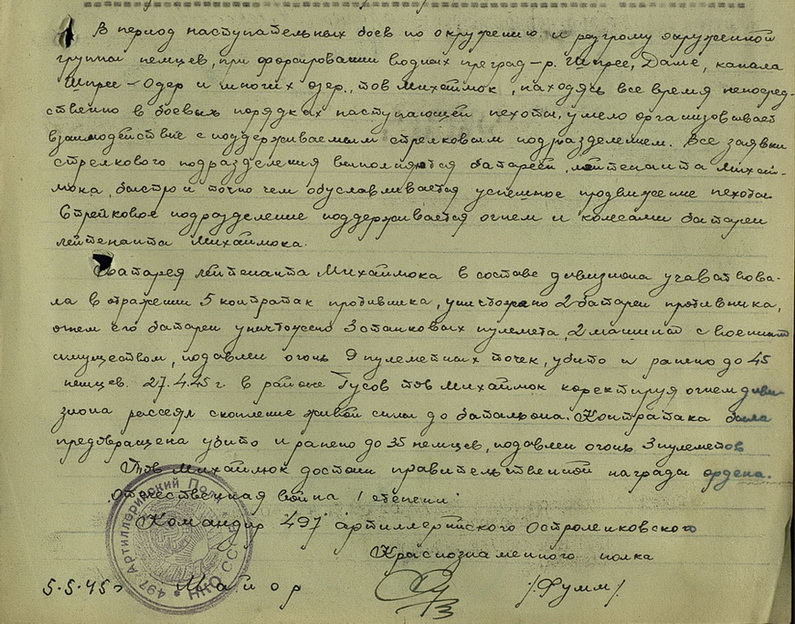 В период наступательных боев по окружению и разгрому окруженной
группы немцев, при форсировании водных преград – р. Шпрее, Даме, канала
Шпрее – Одер и многих озер, тов Михаймюк, находясь все время непосред-
ственно в боевых порядках наступающей пехоты, умело организовывает
взаимодействие с поддерживаемым стрелковым подразделением. Все заявки
стрелкового подразделения выполняются батареей лейтенанта Михай-
мюка, быстро и точно чем обуславливается успешное продвижение пехоты.
Стрелковое подразделение поддерживается огнем и колесами батареи
лейтенанта Михаймюка.
Батарея лейтенанта Михаймюка в составе дивизиона участвова-
ла в отражении 5 контратак противника, уничтожено 2 батареи противника,
огнем его батареи уничтожено 3 станковых пулемета, 2 машины с военным
имуществом, подавлен огонь 9 пулеметных точек, убито и ранено до 45
немцев. 27.4.45 г в районе Гусов тов Михаймюк коректируя огнем диви-
зиона рассеял скопление живой силы до батальона. Контратака была
предотвращена убито и ранено до 35 немцев, подавлен огонь 3 пулеметов
Тов Михаймюк достоин правительственной награды ордена.
Отечественная война 1 степени.
Командир 497 артиллерийского Остроленковского
Краснознаменного полка
5.5.45 г Майор /Фумм/.
497 Артиллерийский По
НКО ССС